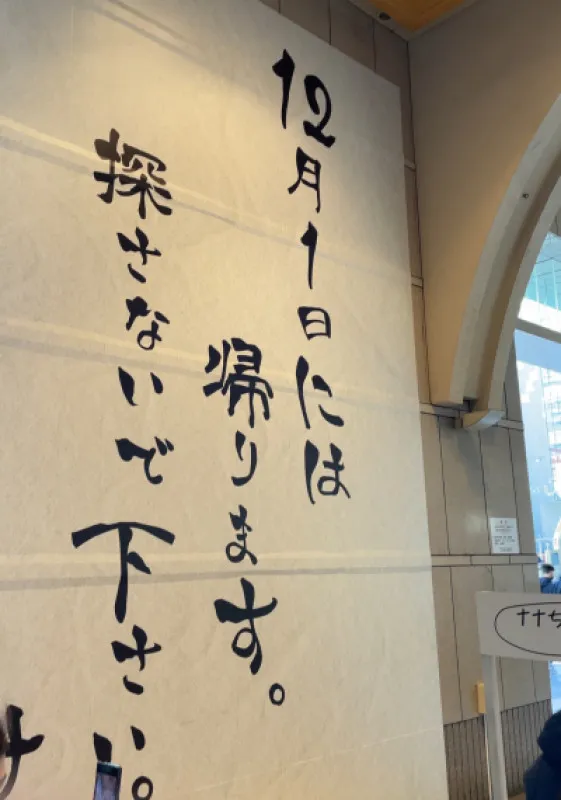 12月1日には
帰ります。
探さないで下さい。
ナナち